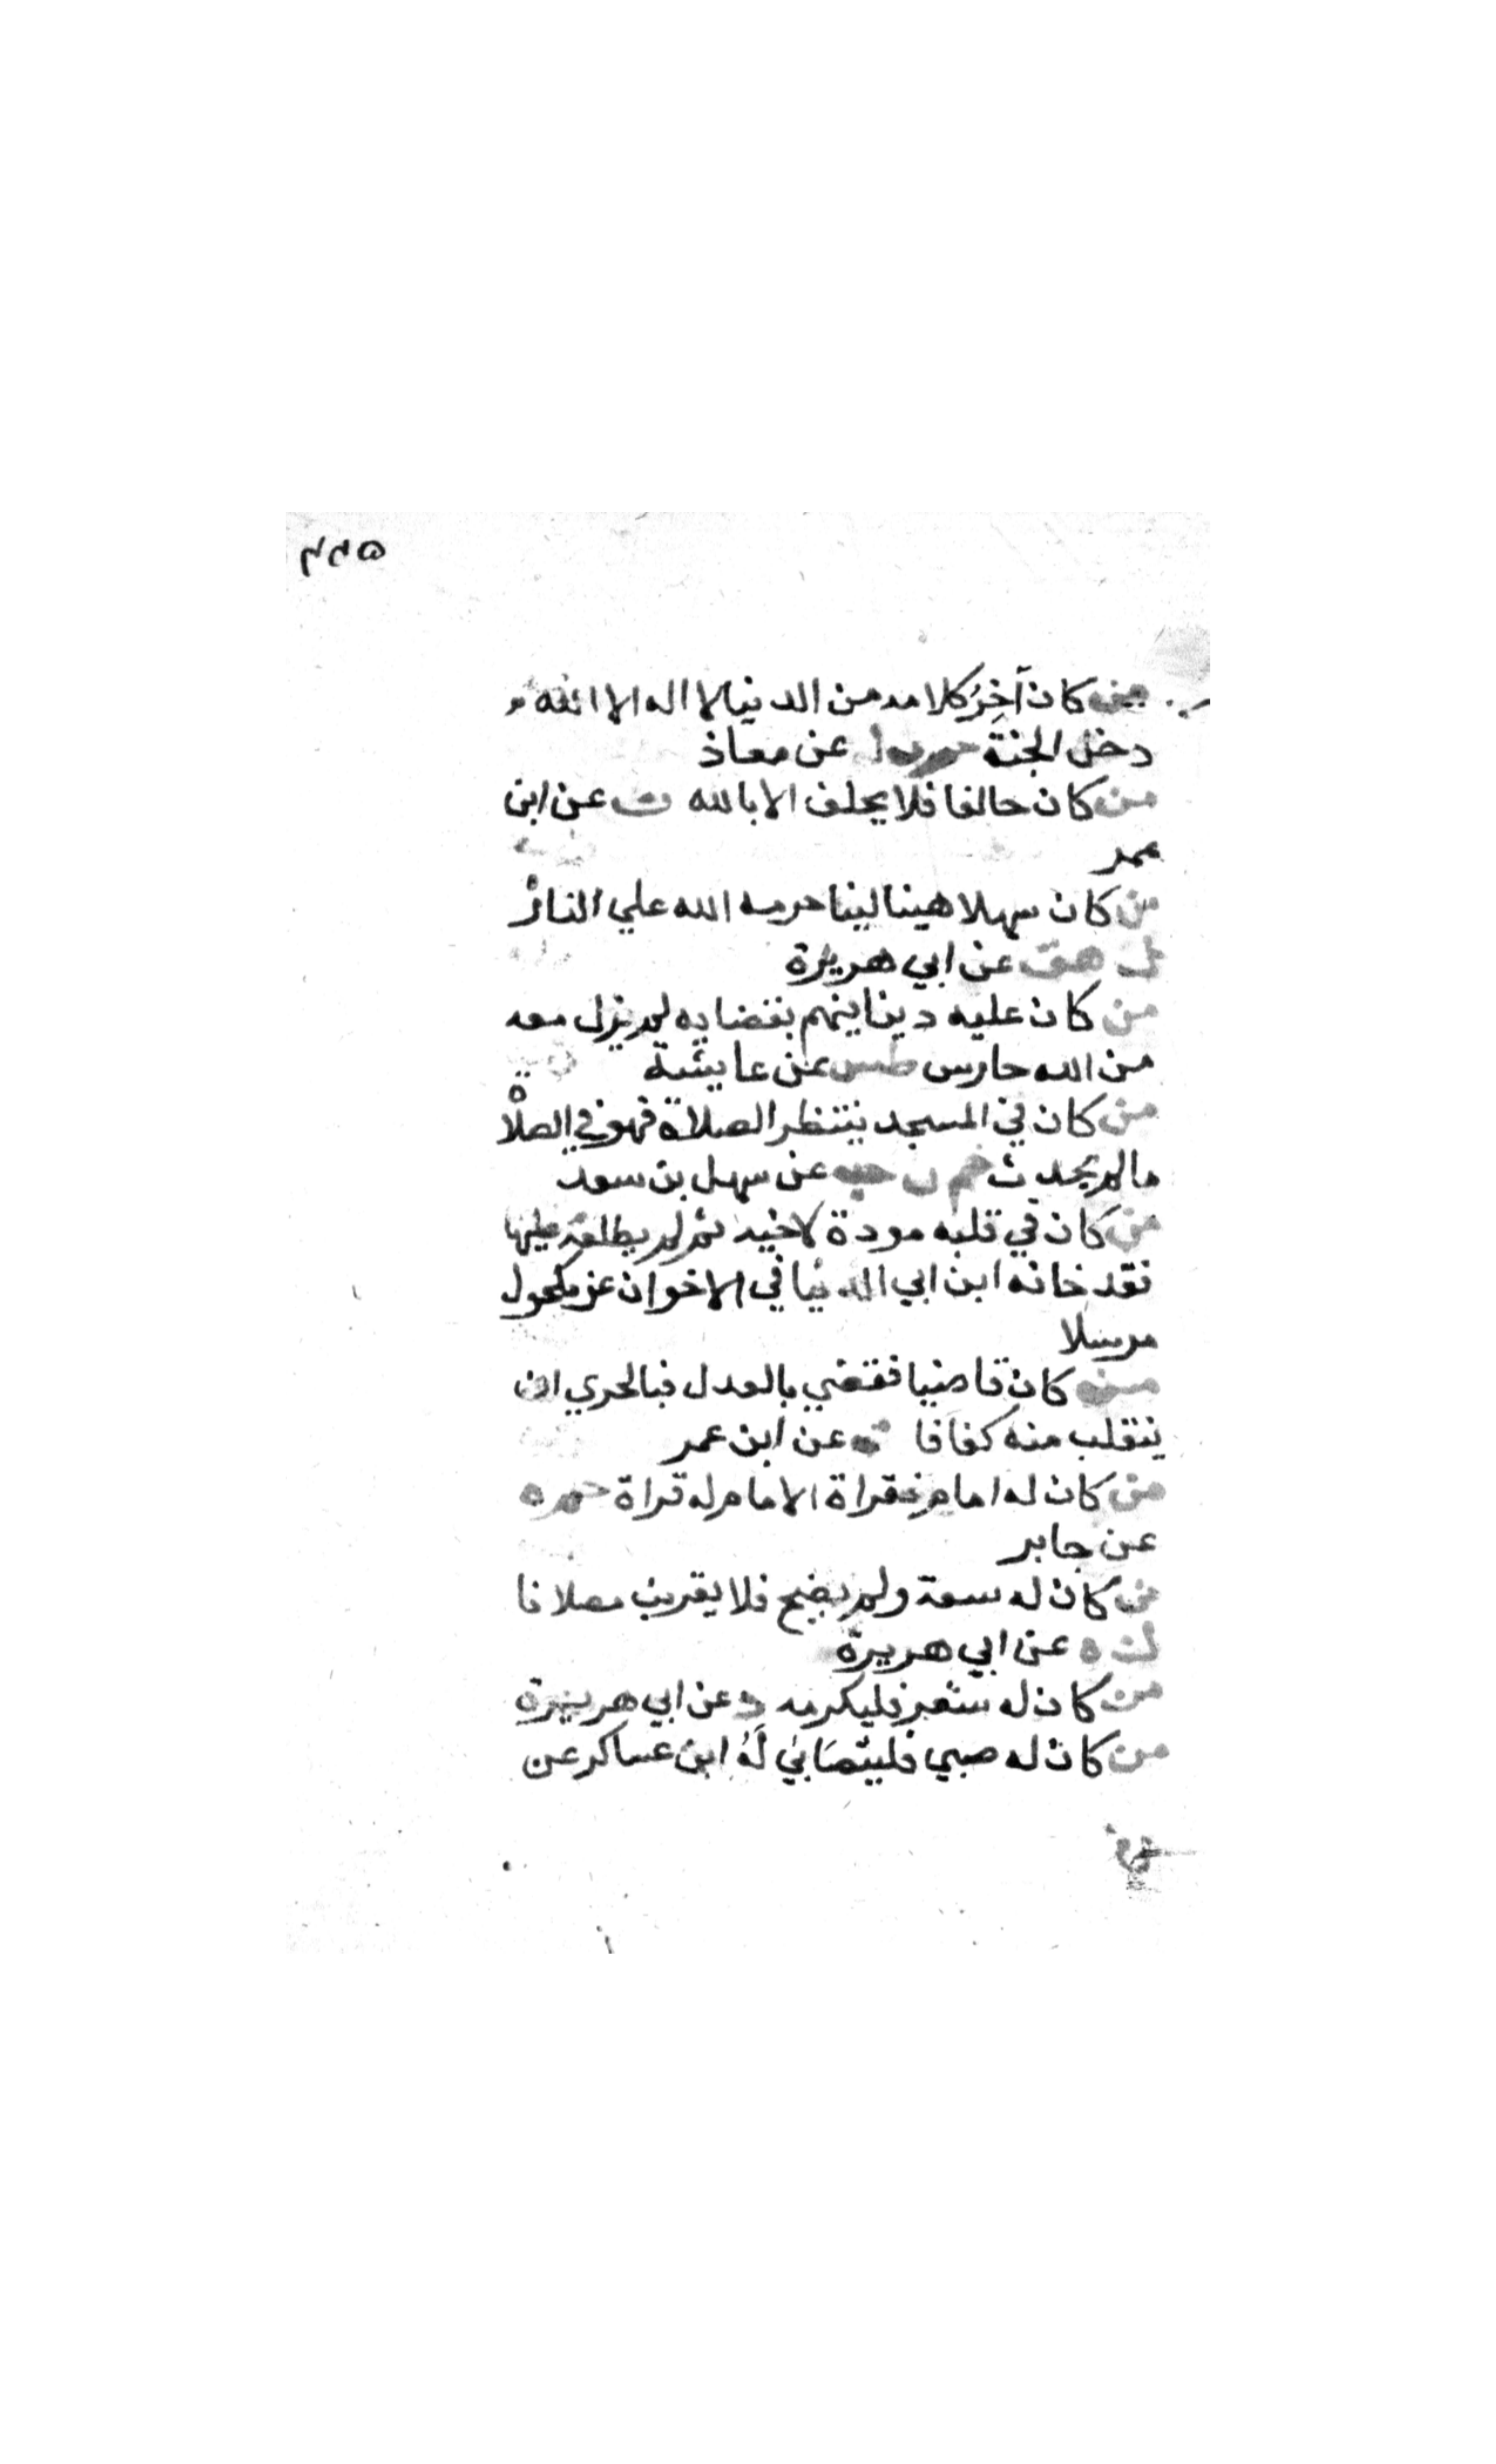 ٥٢٢
من كان آخِرُ كلامه من الدنيا لا اله الا الله
دخل الجنة عن معاذ
من كان حالفا فلا يحلف الا بالله ن عن ابن
عمر
من كان سهلا هينا لينا حرمه الله علي النار
ك هق عن ابي هريرة
من كان عليه دينا ينهم بقضايه لم يزل معه
من الله حارس طس عن عايشة
من كان في المسجد ينتظر الصلاة فهو في الصلاة
ما لم يحدث حم ن حب عن سهل بن سعد
من كان في قلبه مودة لاخيه ثم لم يطلعه عليها
فقد خانه ابن ابي الدنيا في الاخوان عن مكحول
مرسلا
من كان قاضيا فقضي بالعدل فبالحري ان
ينقلب منه كفافا ت عن ابن عمر
من كان له امام فقراة الامام له قراة حم ه
عن جابر
من كان له سعة ولم يضح فلا يقربن مصلانا
ك ه عن ابي هريرة
من كان له شعر فليكرمه د عن ابي هريرة
من كان له صبي فليتصَابي لَهُ ابن عساكر عن